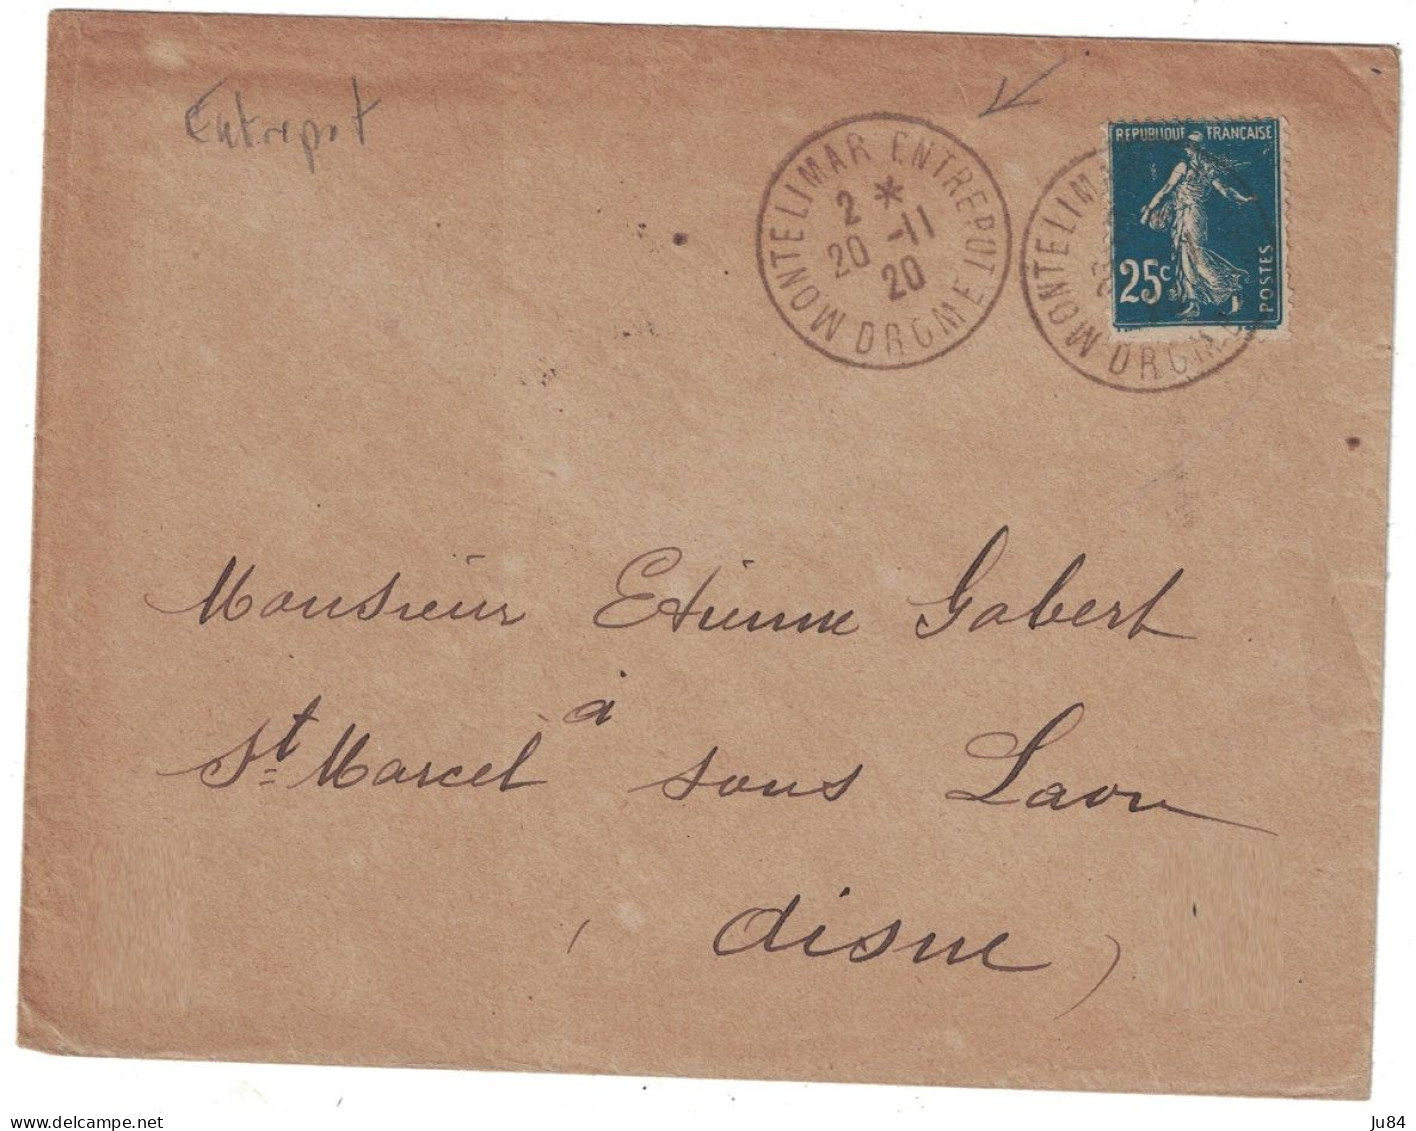 Entrepot
MONTELIMAR ENTREPOT
2 *
20 -11
20
DROME
MONTELIMAR
DROME
REPUBLIQUE FRANÇAISE
25c
POSTES
Monsieur Etienne Gobert
à
St Marcel sous Laon
(Aisne)
delcampe.net
Ju84